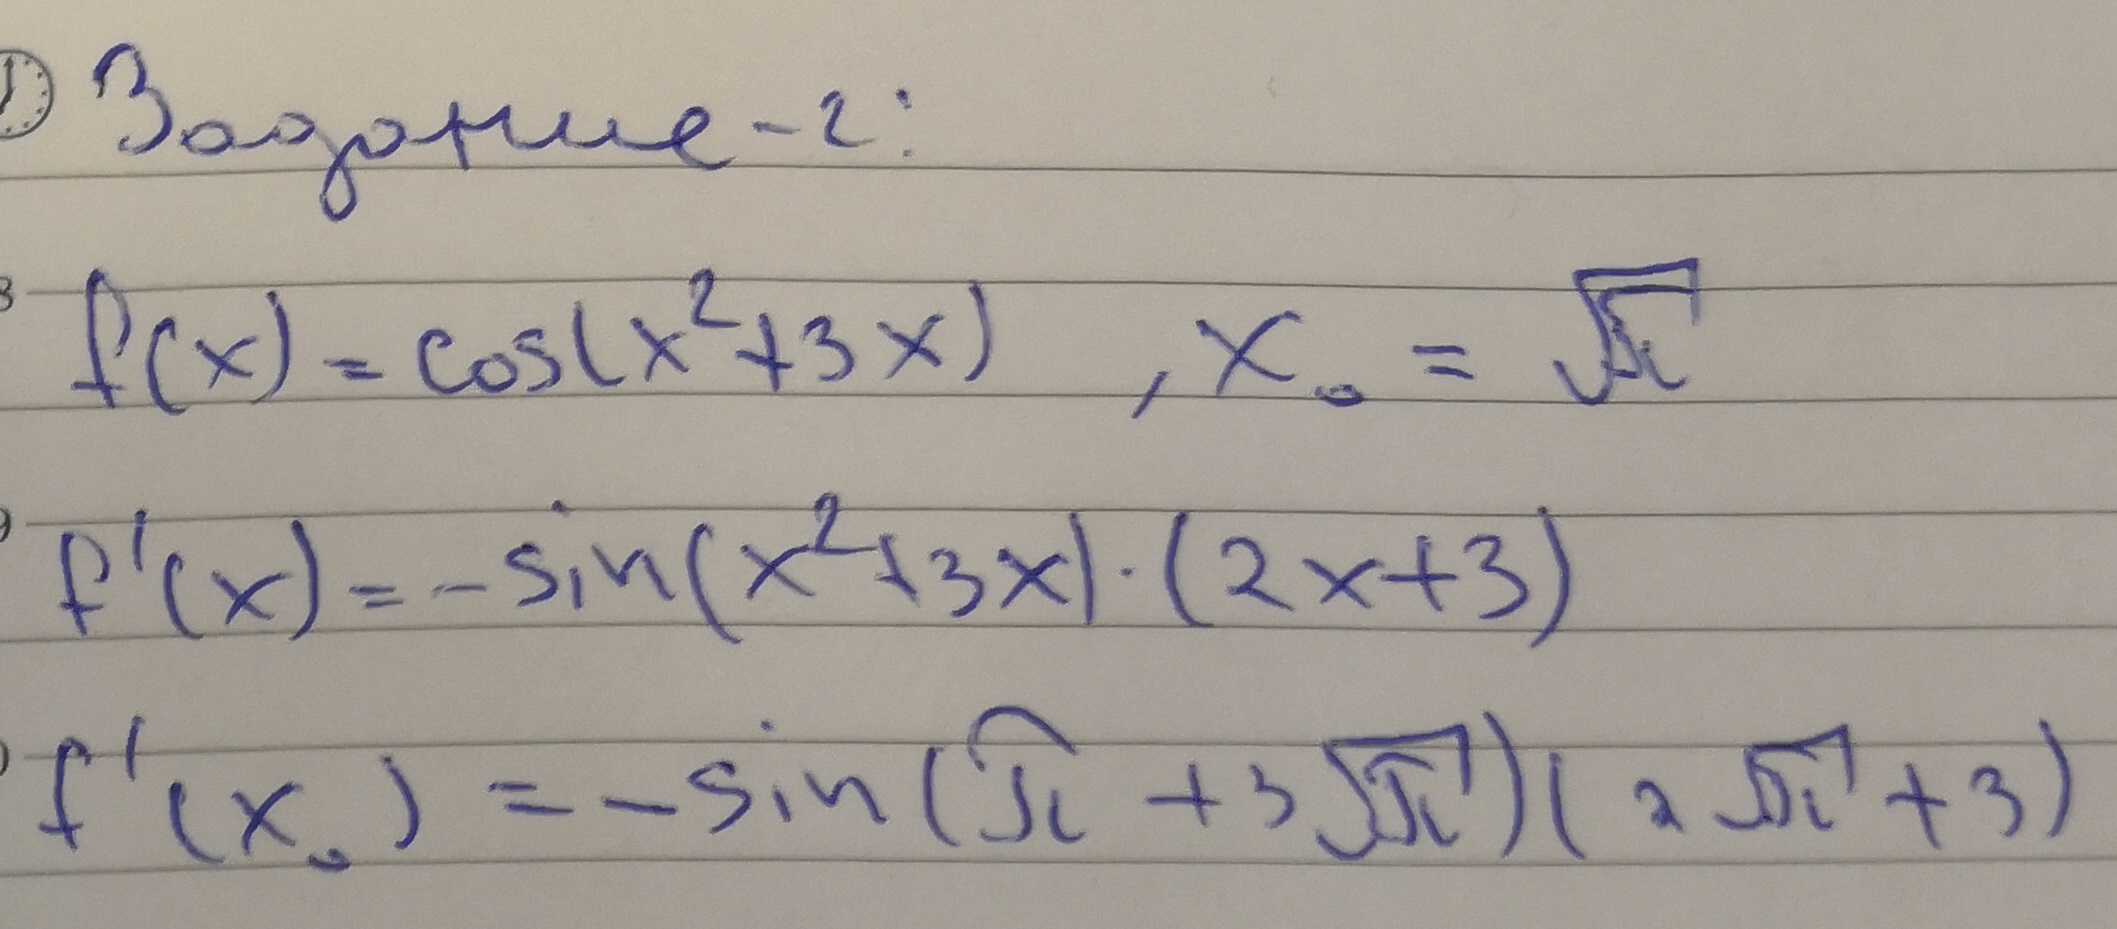 Задание-2:
f(x) = cos(x²+3x) , x₀ = √π
f'(x) = -sin(x²+3x)·(2x+3)
f'(x₀) = -sin(π + 3√π)(2√π + 3)